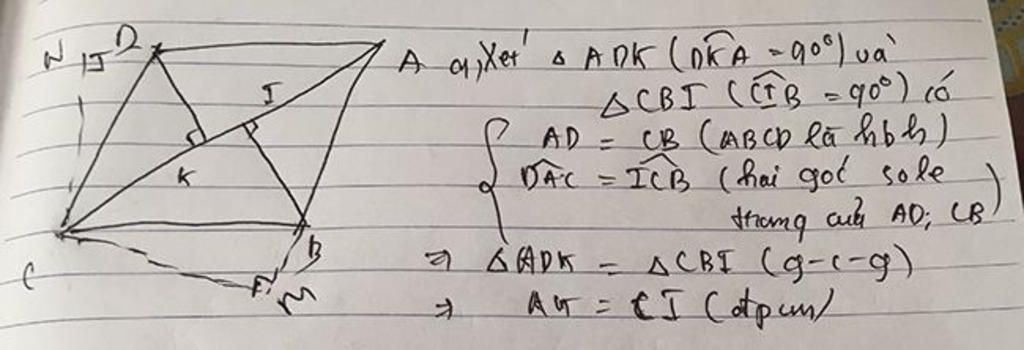 N
D
A
I
K
C
B
M
a, Xét Δ ADK (D̂KA = 90°) và
Δ CBI (ĈIB = 90°) có
AD = CB (ABCD là hbh)
D̂AC = ÎCB (hai góc so le
trong của AD; CB)
⇒ Δ ADK = Δ CBI (g-c-g)
⇒ = CI (đpcm)